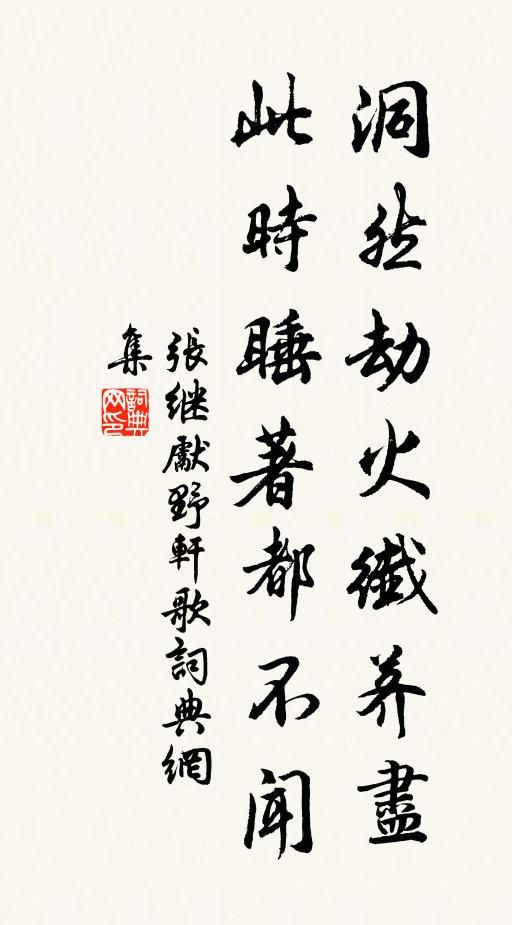 洞然劫火纖芥盡
此時睡著都不聞
張继獻野軒歌詞典網
集
詞典
网印